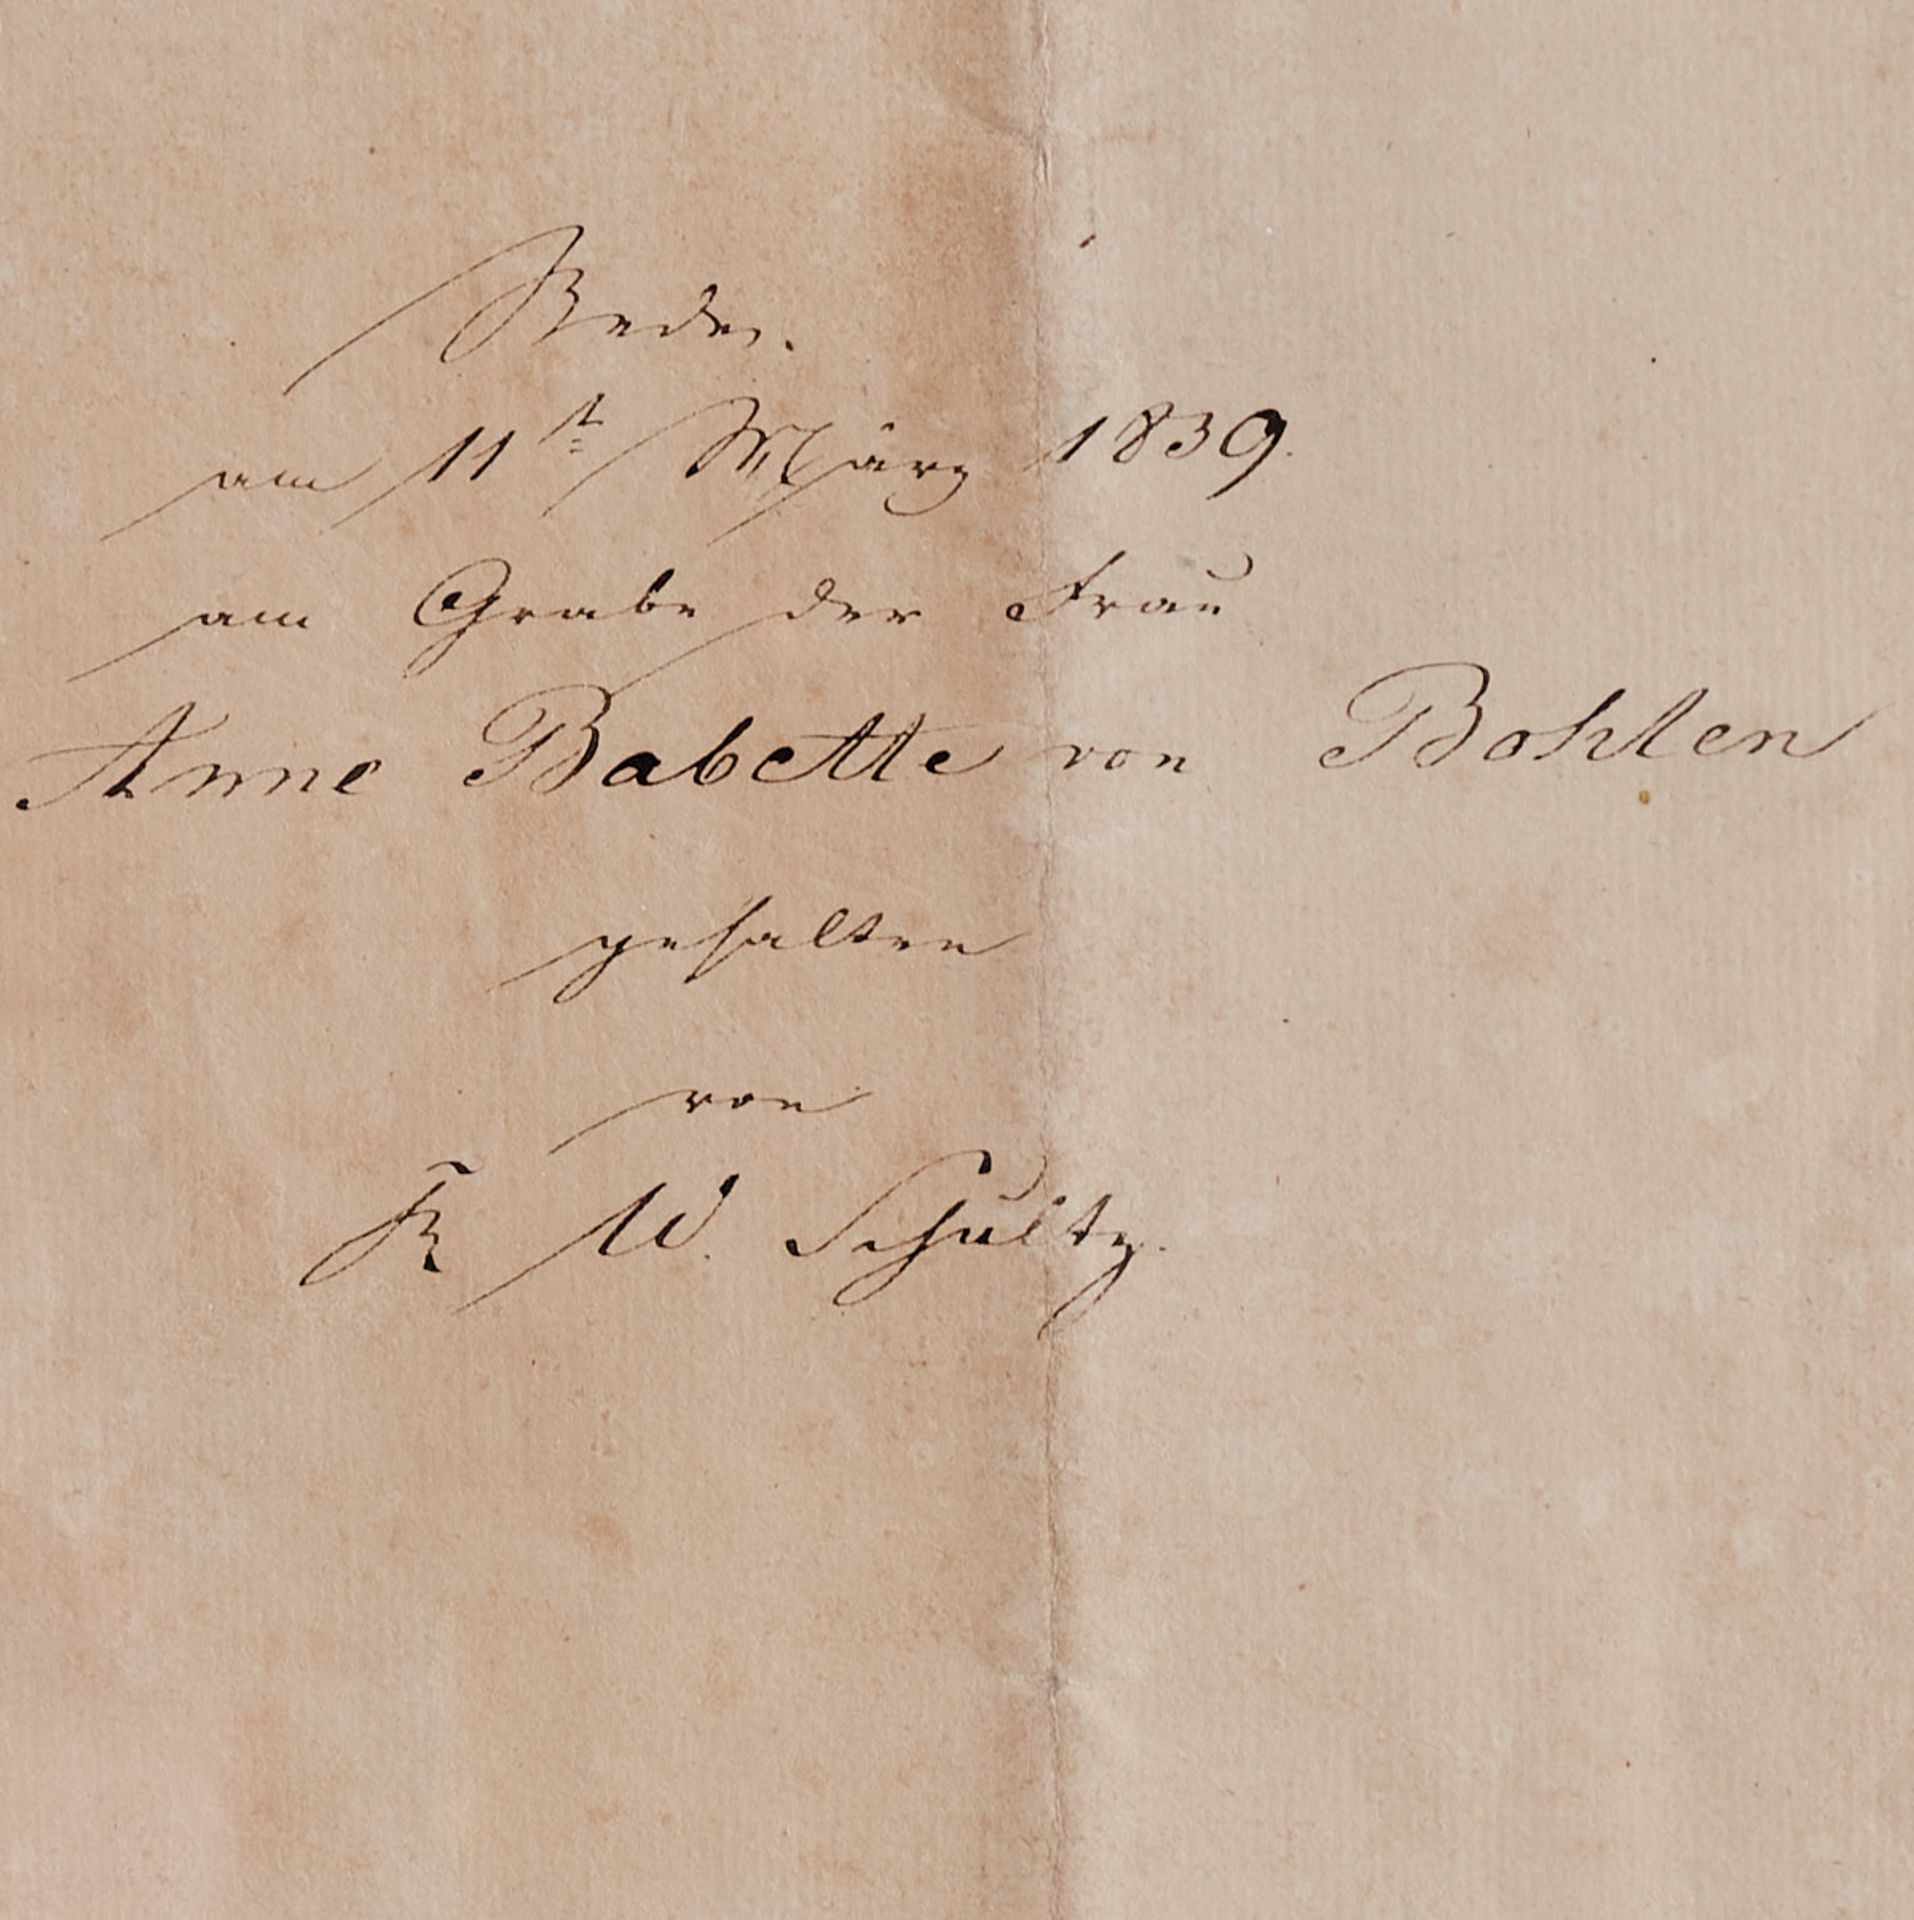 Rede.
am 11t März 1839.
am Grabe der Frau
Anne Babette von Bohlen
gehalten
von
K W. Schultz.